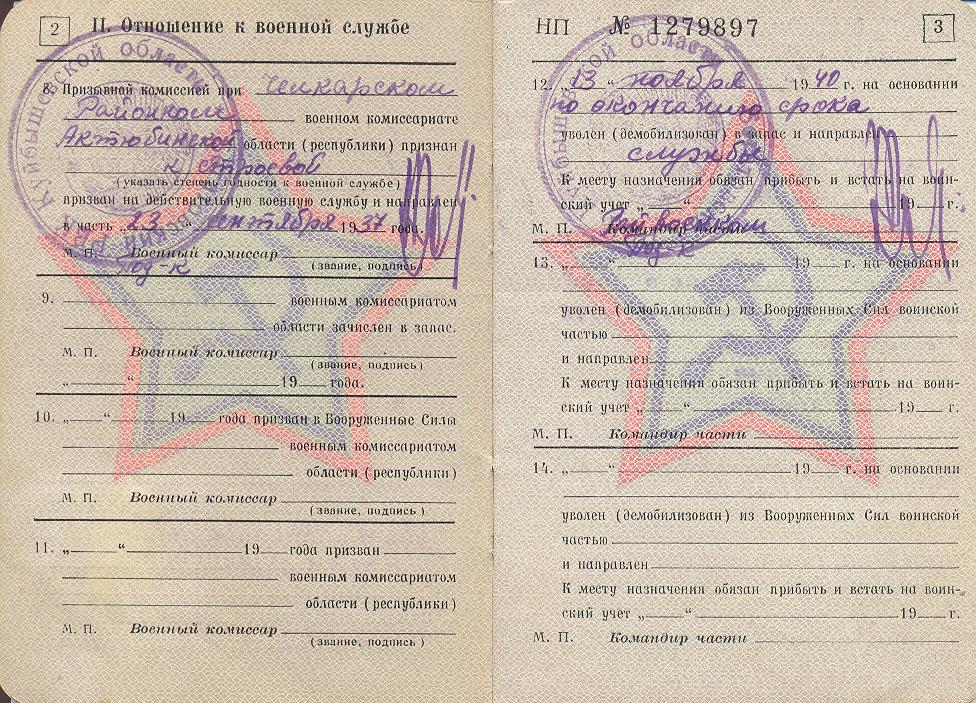 2
II. Отношение к военной службе
8. Призывной комиссией при Челкарском
Райвоенкоме военном комиссариате
Актюбинской области (республики) признан
к строевой
(указать степень годности к военной службе)
призван на действительную военную службу и направлен
в часть „23“ сентября 1937 года.
М. П. Военный комиссар
(звание, подпись)
Под-к
9. военным комиссариатом
области зачислен в запас.
М. П. Военный комиссар
(звание, подпись)
„ “ 19 года.
10. „ “ 19 года призван в Вооруженные Силы
военным комиссариатом
области (республики)
М. П. Военный комиссар
(звание, подпись)
11. „ “ 19 года призван
военным комиссариатом
области (республики)
М. П. Военный комиссар
(звание, подпись)
Куйбышевской области
НП № 1279897
3
12. „13“ ноября 1940 г. на основании
по окончанию срока
уволен (демобилизован) в запас и направлен
службы
К месту назначения обязан прибыть и встать на воин-
ский учет „ “ 19 г.
М. П. Райвоенком Командир части
Под-к
13. „ “ 19 г. на основании
уволен (демобилизован) из Вооруженных Сил воинской
частью
и направлен
К месту назначения обязан прибыть и встать на воин-
ский учет „ “ 19 г.
М. П. Командир части
14. „ “ 19 г. на основании
уволен (демобилизован) из Вооруженных Сил воинской
частью
и направлен
К месту назначения обязан прибыть и встать на воин-
ский учет „ “ 19 г.
М. П. Командир части